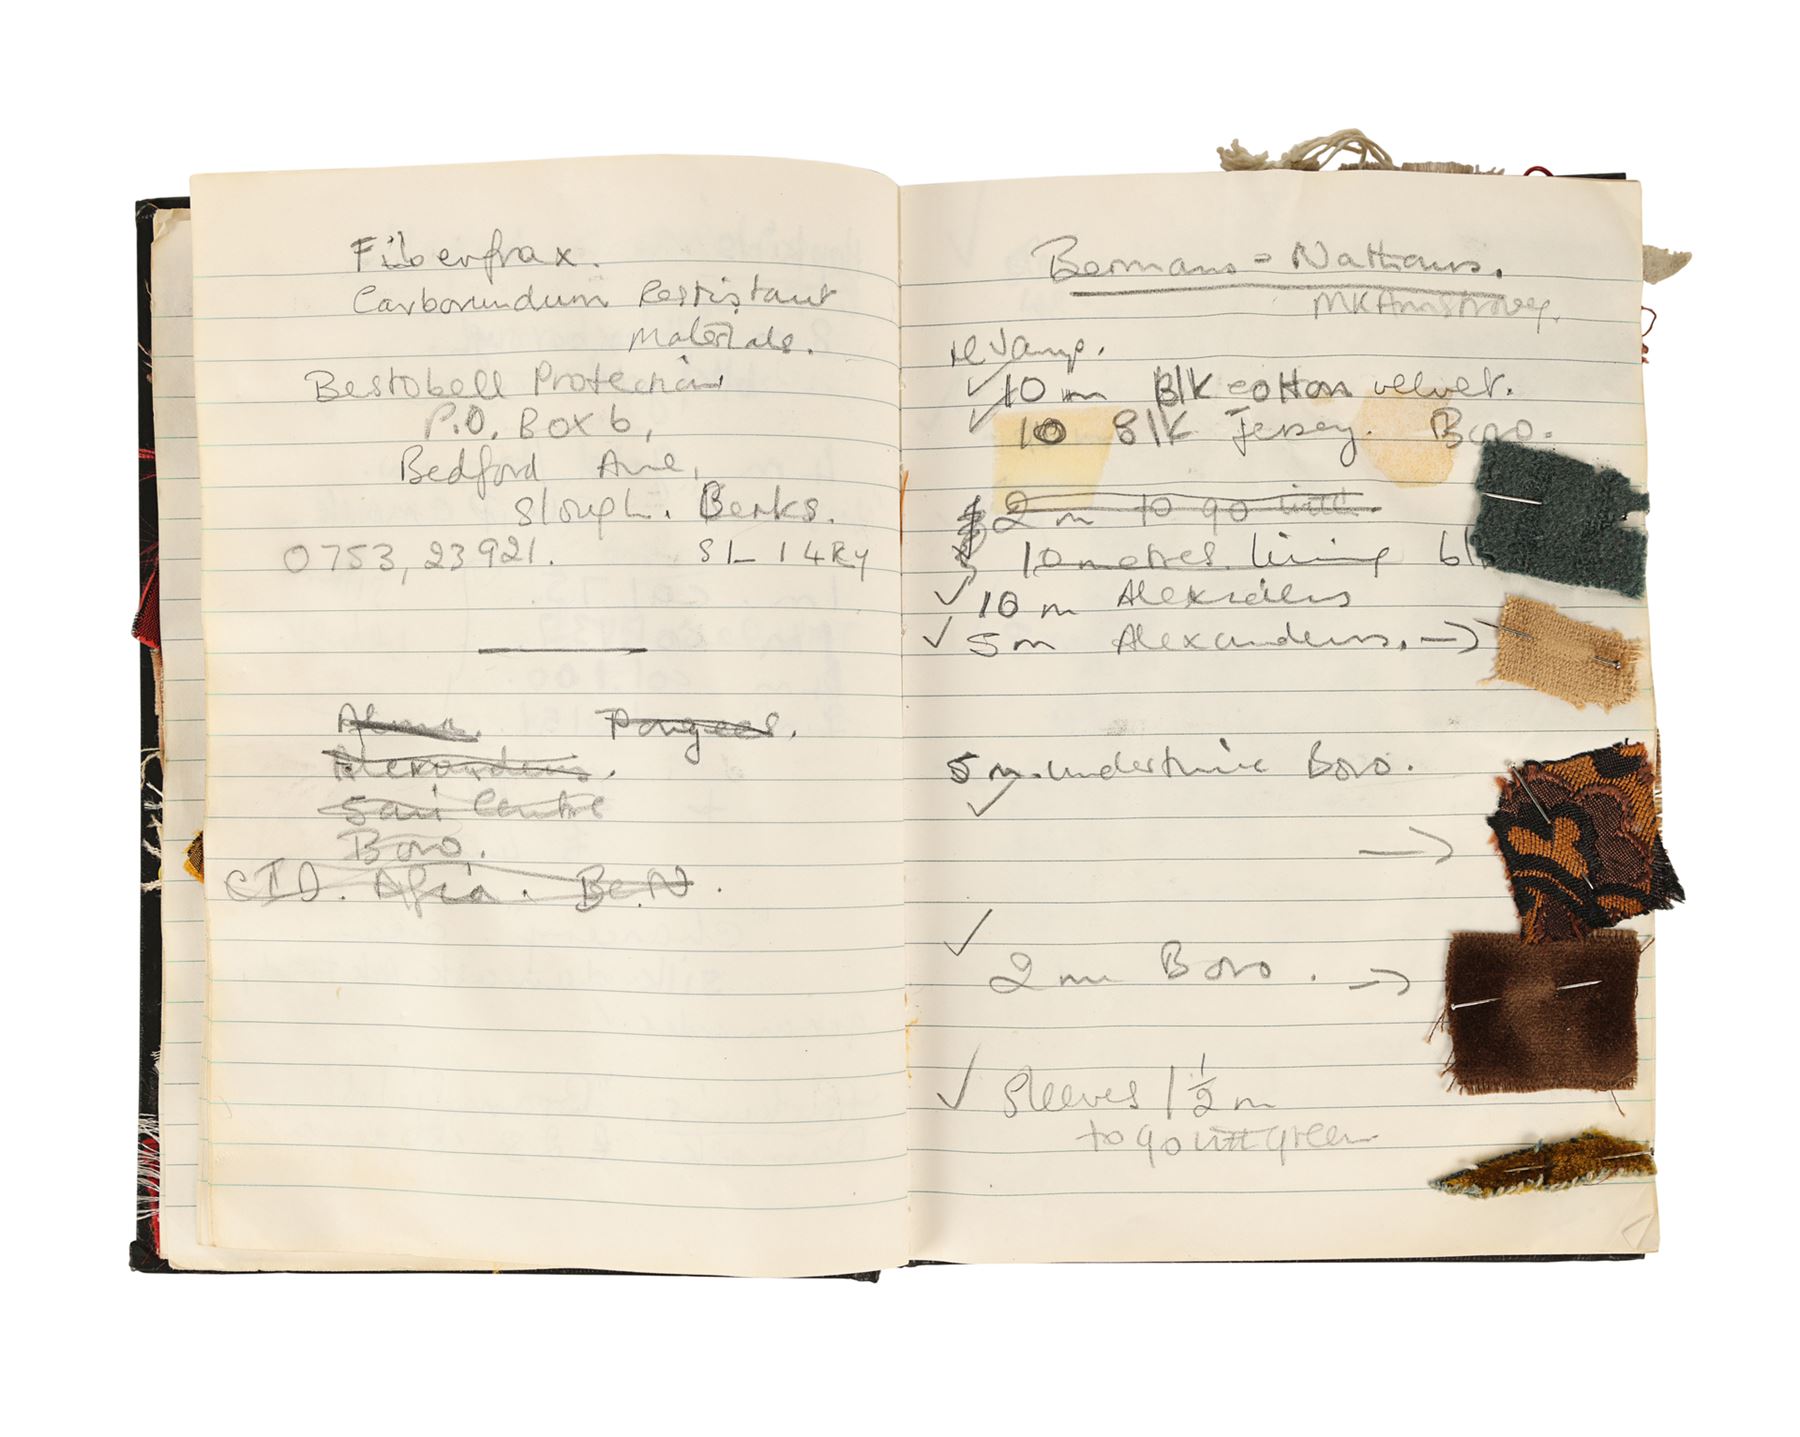 Fiberfrax.
Carborundum Resistant
Materials.
Bestobell Protection
P.O. Box 6,
Bedford Ave,
Slough. Berks.
0753, 23921. SL 1 4RY
Alma. Pongees.
Alexanders.
Sari Centre
Boro.
CID. Afia. B&N.
Bermans = Nathans.
MK Armstrong.
revamp.
10 m Blk cotton velvet.
10 Blk Jersey. Boro.
2 m to go with.
10 metres lining bl
10 m Alexanders
5 m Alexanders. →
5 m. Boro.
→
2 m Boro. →
Sleeves 1 1/2 m
to go with green